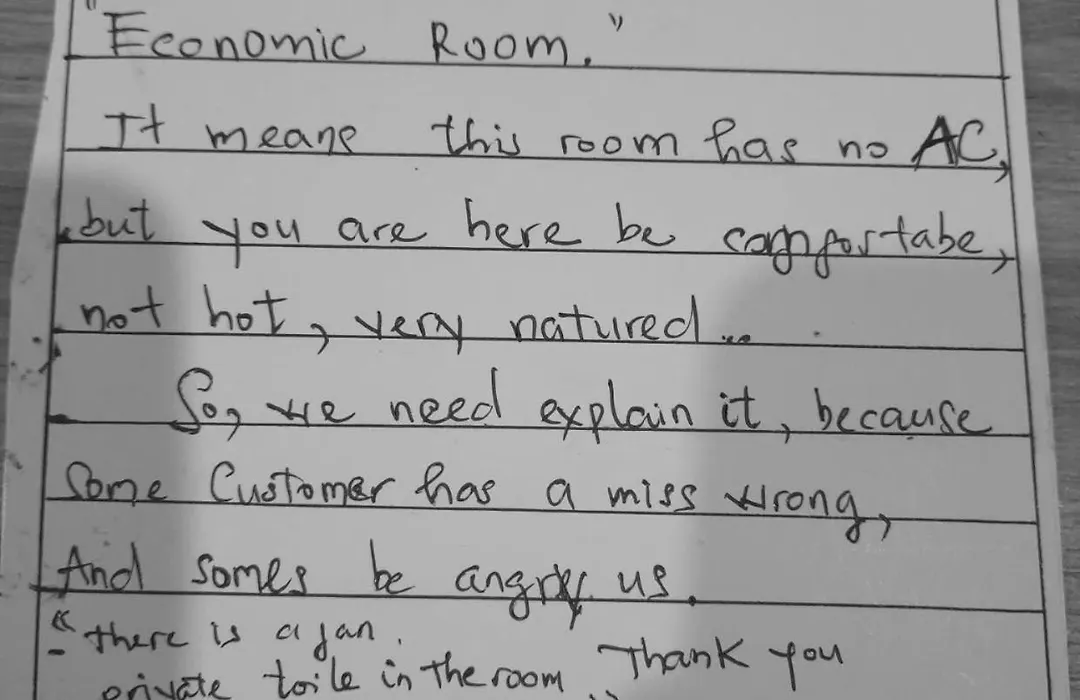 "Economic Room."
It means this room has no AC,
but you are here be comfortabe,
not hot, very natured...
So, we need explain it, because
Some Customer has a miss wrong,
And somes be angry us.
"there is a fan.
- private toile in the room Thank you